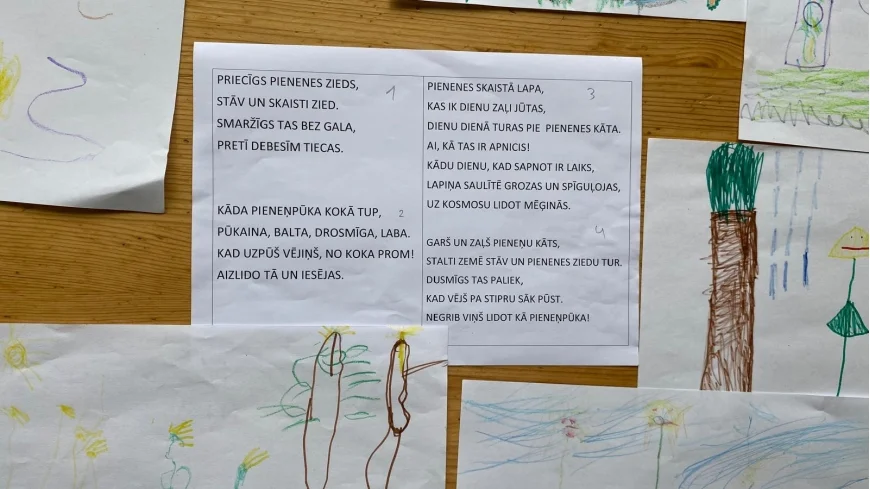 PRIECĪGS PIENENES ZIEDS, 1
STĀV UN SKAISTI ZIED.
SMARŽĪGS TAS BEZ GALA,
PRETĪ DEBESĪM TIECAS.
KĀDA PIENEŅPŪKA KOKĀ TUP, 2
PŪKAINA, BALTA, DROSMĪGA, LABA.
KAD UZPŪŠ VĒJIŅŠ, NO KOKA PROM!
AIZLIDO TĀ UN IESĒJAS.
PIENENES SKAISTĀ LAPA, 3
KAS IK DIENU ZAĻI JŪTAS,
DIENU DIENĀ TURAS PIE PIENENES KĀTA.
AI, KĀ TAS IR APNICIS!
KĀDU DIENU, KAD SAPŅOT IR LAIKS,
LAPIŅA SAULĪTĒ GROZAS UN SPĪGUĻOJAS,
UZ KOSMOSU LIDOT MĒĢINĀS.
4
GARŠ UN ZAĻŠ PIENEŅU KĀTS,
STALTI ZEMĒ STĀV UN PIENENES ZIEDU TUR.
DUSMĪGS TAS PALIEK,
KAD VĒJŠ PA STIPRU SĀK PŪST.
NEGRIB VIŅŠ LIDOT KĀ PIENEŅPŪKA!